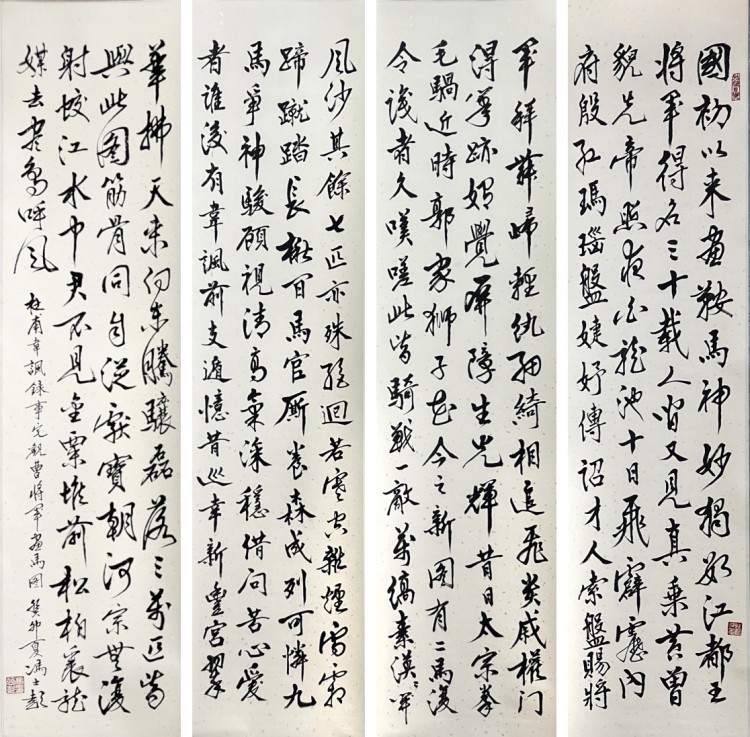 國初以來畫鞍馬神妙獨數江都王
將軍得名三十載人間又見真乘黃曾
貌先帝照夜白龍池十日飛霹靂內
府殷紅瑪瑙盤婕妤傳詔才人索盤賜將
軍拜舞歸輕紈細綺相追飛貴戚權門
得筆跡始覺屏障生光輝昔日太宗拳
毛騧近時郭家獅子花今之新圖有二馬復
令識者久嘆嗟此皆騎戰一敵萬縞素漠漠開
風沙其餘七匹亦殊絕迥若寒空雜煙雪霜
蹄蹴踏長楸間馬官廝養森成列可憐九
馬爭神駿顧視清高氣深穩借問苦心愛
者誰後有韋諷前支遁憶昔巡幸新豐宮翠
華拂天來向東騰驤磊落三萬匹皆
與此圖筋骨同自從獻寶朝河宗無復
射蛟江水中君不見金粟堆前松柏裏龍
媒去盡鳥呼風
杜甫韋諷錄事宅觀曹將軍畫馬圖 癸卯夏馮士彭